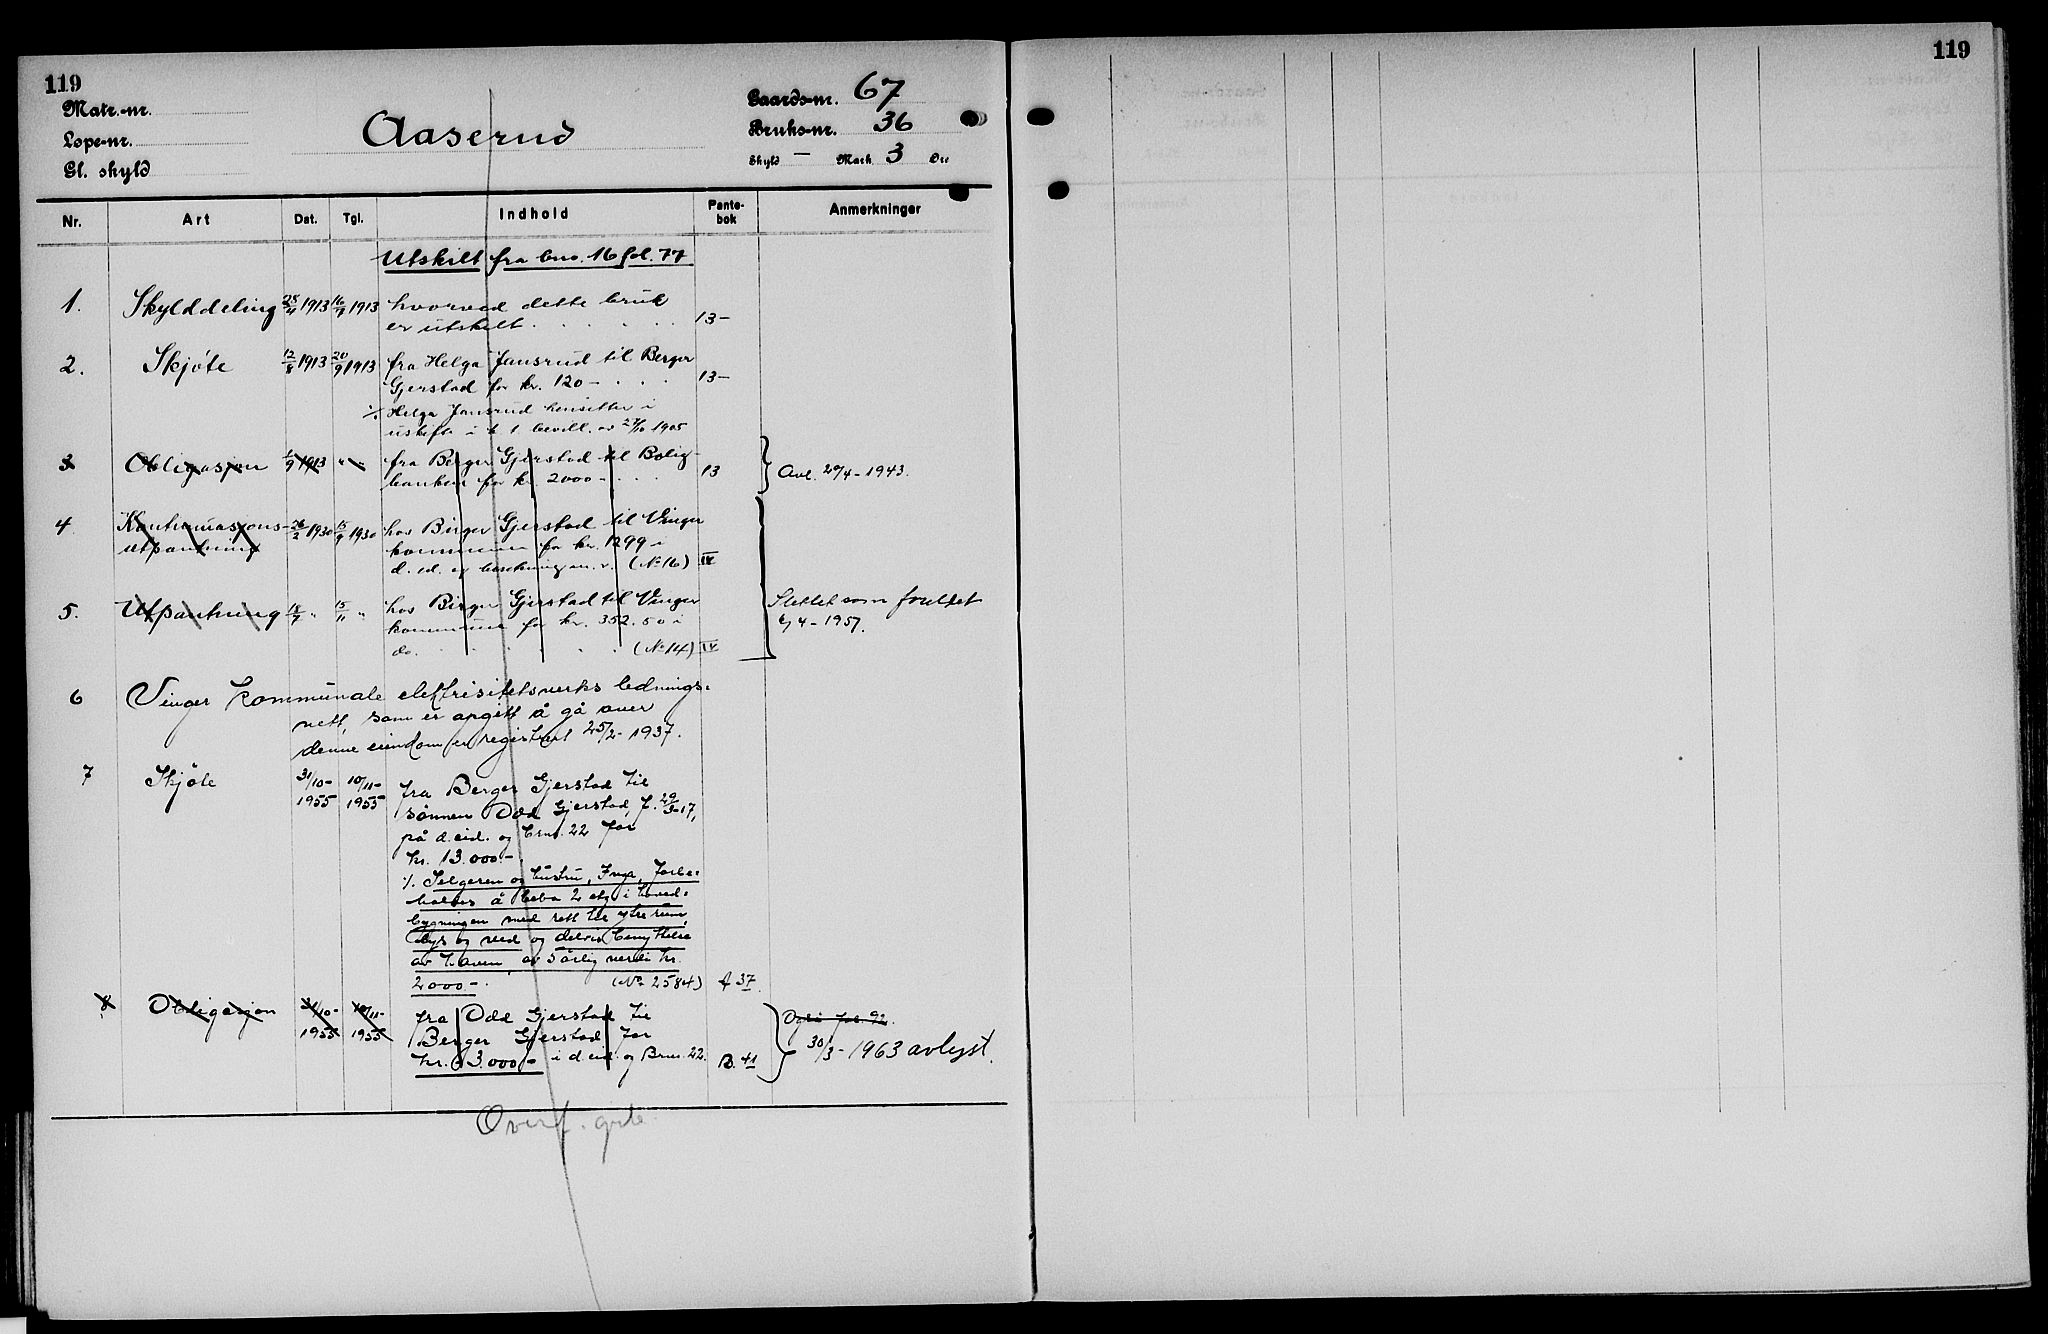 119
119
Matr.-nr.
Løpe-nr.
Gl. skyld
Aaserud
Gaards-nr. 67
Bruks-nr. 36
Skyld — Mark 3 Øre
Nr. Art Dat. Tgl. Indhold Pante-bok Anmerkninger
Utskilt fra bno. 16 fol. 77
1. Skylddeling 28/4 1913 16/9 1913 hvorved dette bruk
er utskilt . . . . . . 13-
2. Skjøte 12/8 1913 20/9 1913 fra Helga Jansrud til Berger
Gjerstad for kr. 120 - . . . 13-
./. Helga Jansrud hensitter i
uskifte i h. t. bevill. av 27/10 1905
3 Obligasjon 1/9 1913 " " fra Berger Gjerstad til Bolig-
banken for kr. 2000 - . . . 13 Avl. 29/4 - 1943.
4. Kontinuasjons- 26/2 1930 15/9 1930 hos Birger Gjerstad til Vinger
utpantning kommune for kr. 1299 i
d. ed. og (No 16) IV
5. Utpantning 18/7 " 15/11 " hos Birger Gjerstad til Vinger
kommune for kr. 352.50 i
do. . . . . . (No 14) IV
Slettet som foreldet
6/4 - 1957.
6 Vinger kommunale elektrisitetsverks lednings-
nett, som er opgitt å gå over
denne eiendom er registrert 25/2 - 1937.
7 Skjøte 31/10 - 1955 10/11 - 1955 fra Berger Gjerstad til
sønnen Odd Gjerstad, f. 29/3-17,
på d. eid. og bnr. 22 for
kr. 13.000.-
./. Selgeren og hustru, Inga, forbe-
holdes å bebo 2 etg i hoved-
bygningen med rett til ytre rum,
lys og ved og delvis benyttelse
av haven, av 5 årlig verdi kr.
2000.- . (No 2584) A 37.
8 Obligasjon 31/10 - 1955 10/11 - 1955 fra Odd Gjerstad til
Berger Gjerstad for
kr. 3.000.- i d. eid. og Bnr. 22. B. 41
Også fol. 92.
30/3 - 1963 avlyst.
Overf. grb.